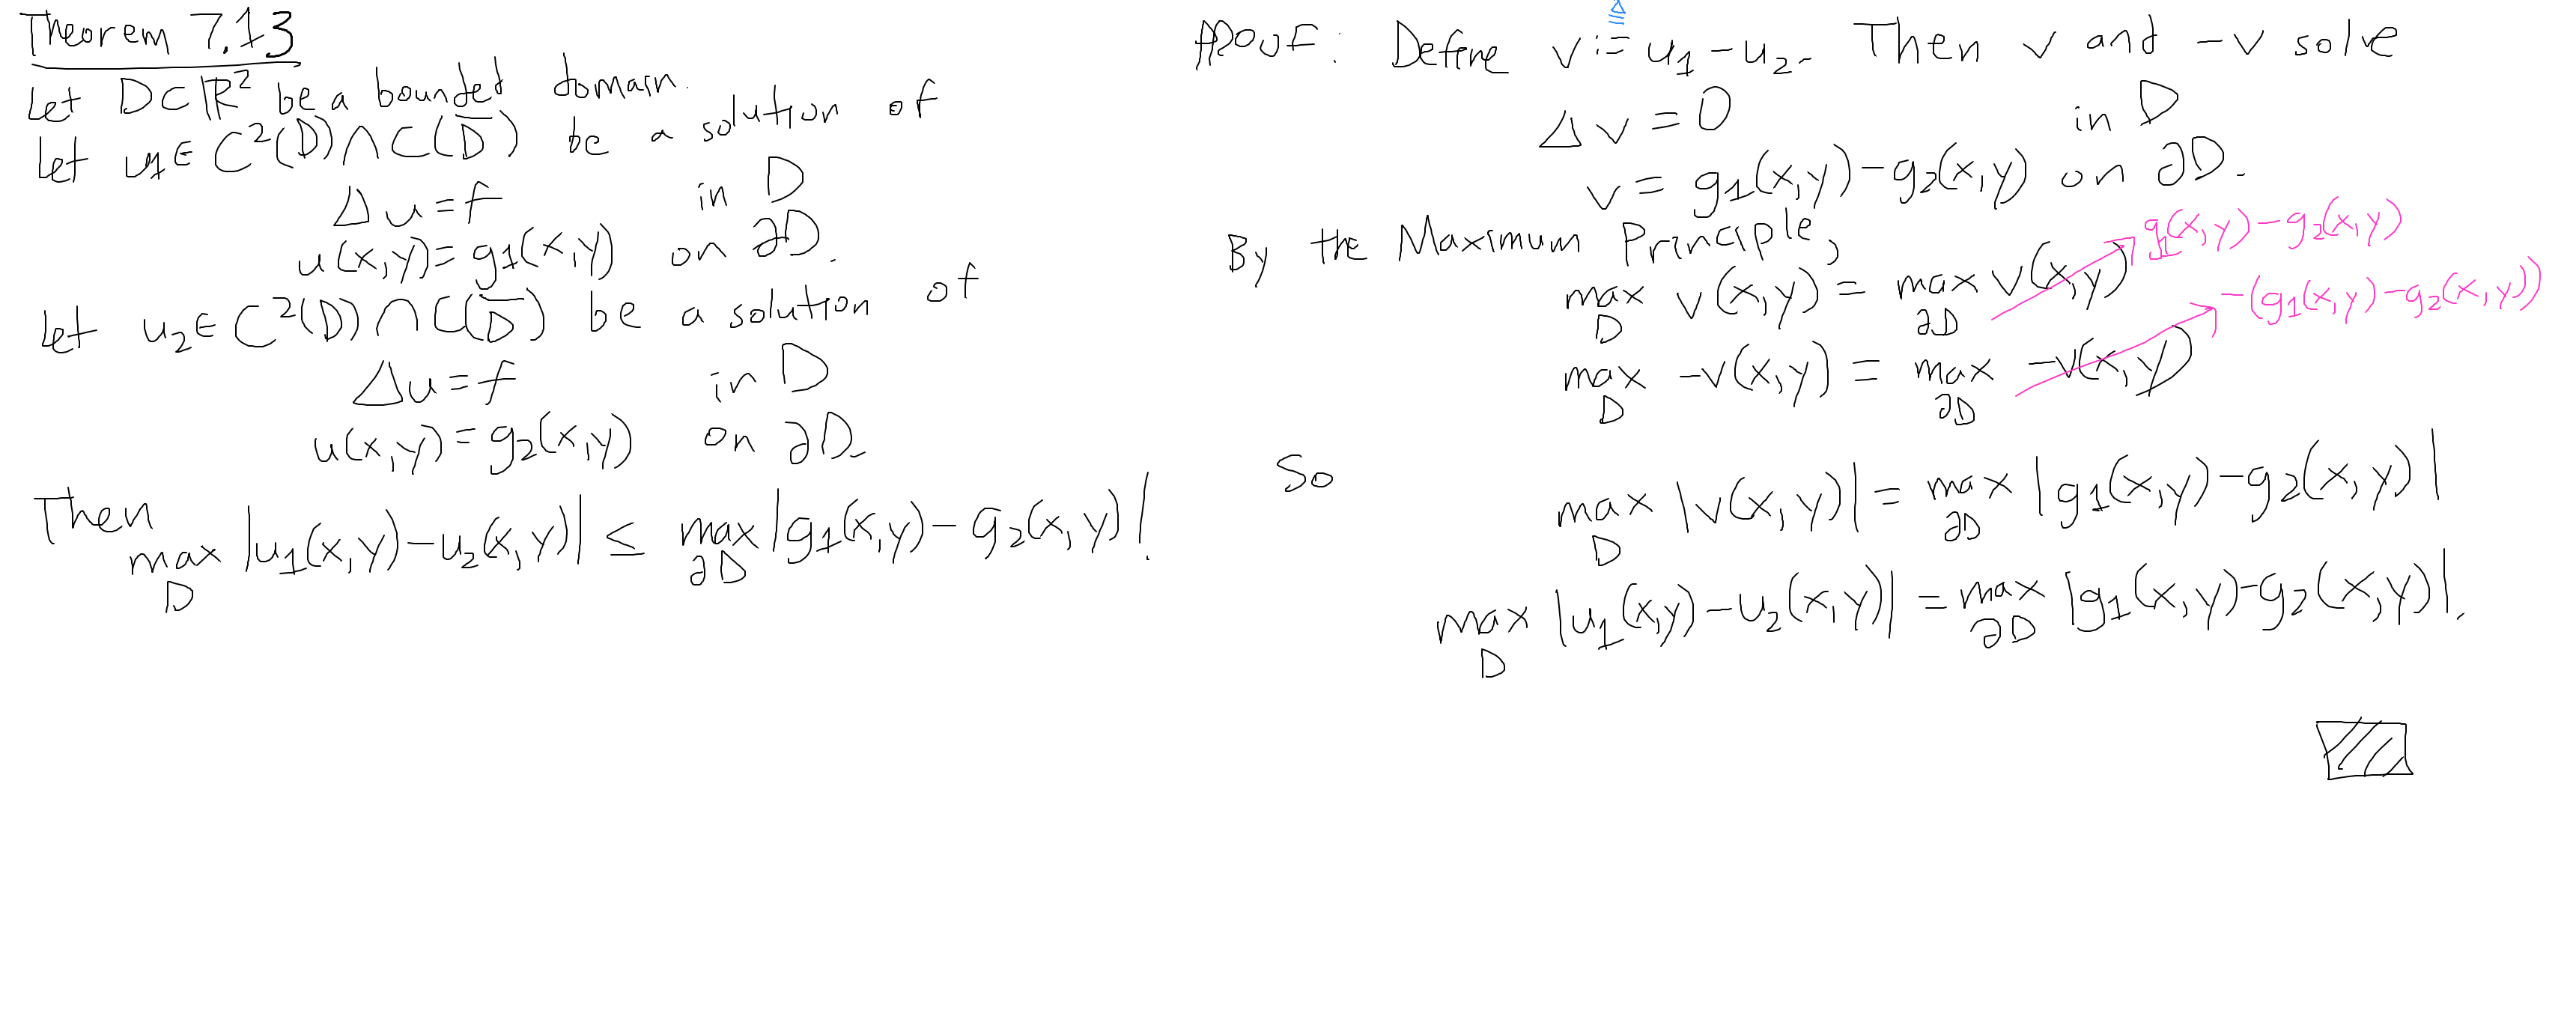 Theorem 7.13
Let D⊂ℝ² be a bounded domain.
Let u₁∈C²(D)∩C(D̅) be a solution of
Δu=f in D
u(x,y)=g₁(x,y) on ∂D.
Let u₂∈C²(D)∩C(D̅) be a solution of
Δu=f in D
u(x,y)=g₂(x,y) on ∂D.
Then
max_D |u₁(x,y)-u₂(x,y)| ≤ max_∂D |g₁(x,y)-g₂(x,y)|.
Proof: Define v:=u₁-u₂. Then v and -v solve
≜
Δv=0 in D
v=g₁(x,y)-g₂(x,y) on ∂D.
By the Maximum Principle,
max_D v(x,y)=max_∂D v(x,y) g₁(x,y)-g₂(x,y)
max_D -v(x,y)=max_∂D -v(x,y) -(g₁(x,y)-g₂(x,y))
So
max_D |v(x,y)|=max_∂D |g₁(x,y)-g₂(x,y)|
max_D |u₁(x,y)-u₂(x,y)|=max_∂D |g₁(x,y)-g₂(x,y)|.